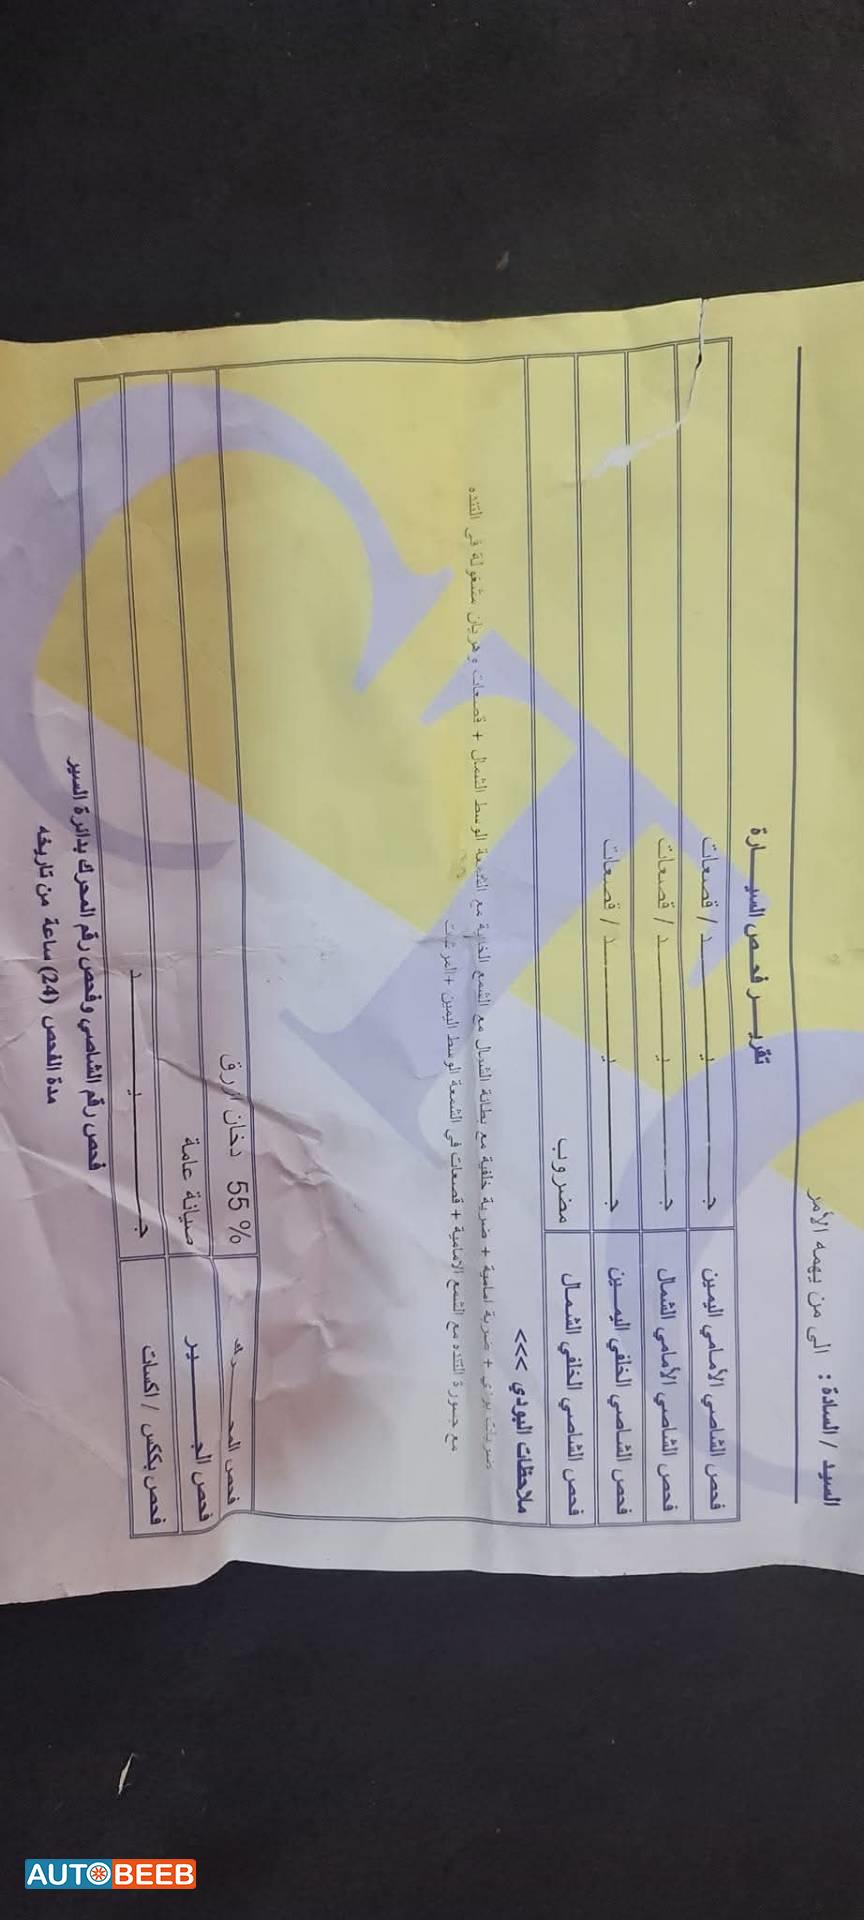 السيد / السادة : الى من يهمه الأمر
تقريـــر فحـص السيـــارة
فحص الشاصي الأمامي اليمين جـــــيــــــد / قصعات
فحص الشاصي الأمامي الشمال جـــــيــــــد / قصعات
فحص الشاصي الخلفي اليمـين جـــــيــــــد / قصعات
فحص الشاصي الخلفي الشمال مضروب
ملاحظات البودي >>>
ضربات بودي + ضربة امامية + ضربة خلفية مع بطانة الشمال مع الشمع الخلفية مع الشمعة الوسط الشمال + قصعات وهريان مشغولة في التنده
مع جسورة التنده مع الشمع الامامية + قصعات في الشمعة الوسط اليمين +
فحص المحـــــرك 55 % دخان ازرق
فحص الجـــــــير صيانة عامة
فحص بككس / اكسات جـــــيــــــد
فحص رقم الشاصي وفحص رقم المحرك بدائرة السير
مدة الفحص (24) ساعة من تاريخه
AUTOBEEB